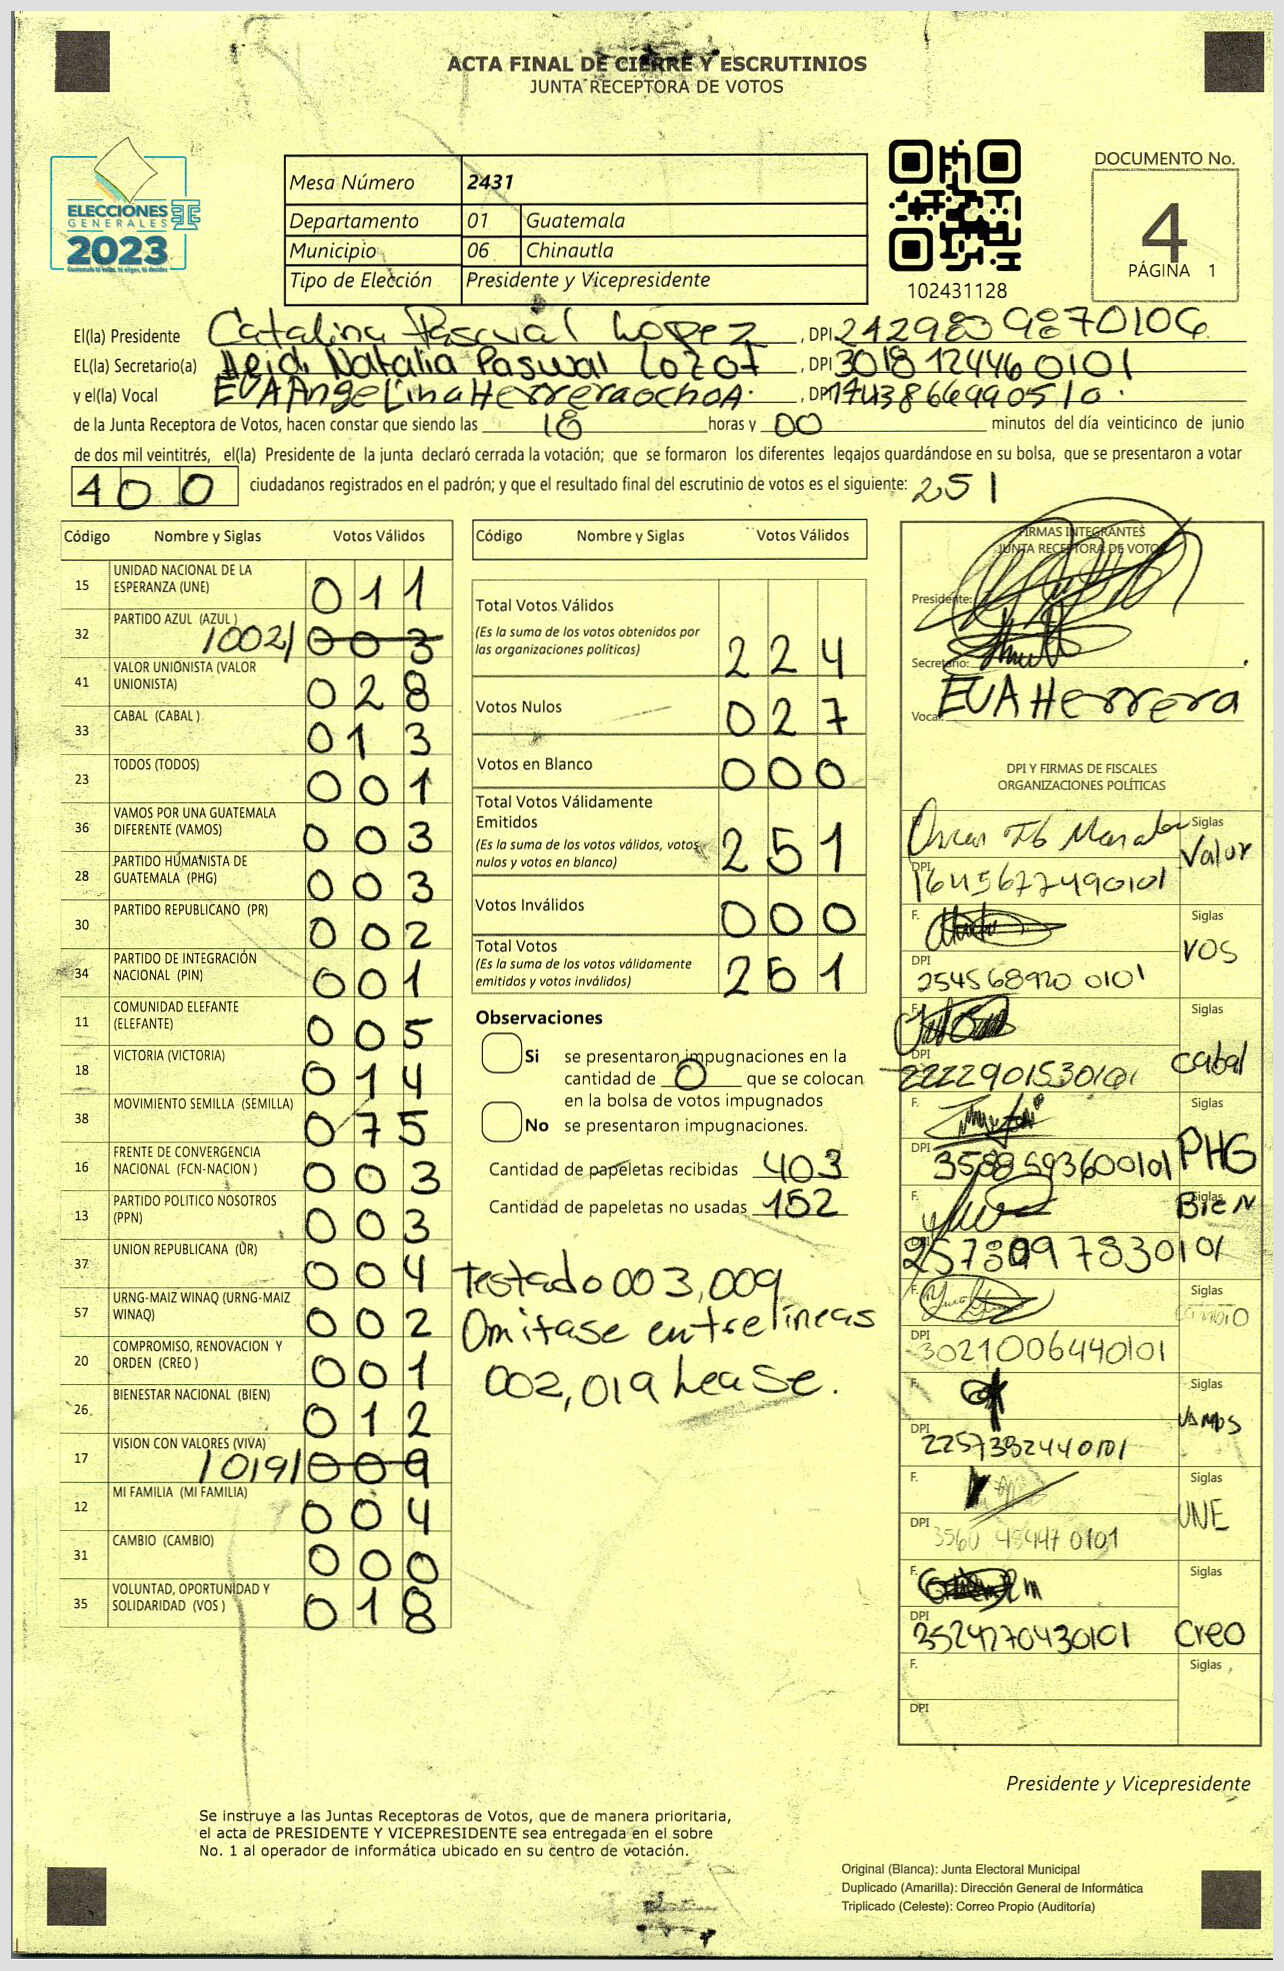 ACTA FINAL DE CIERRE Y ESCRUTINIOS
JUNTA RECEPTORA DE VOTOS
ELECCIONES
GENERALES
2023
Mesa Número 2431
Departamento 01 Guatemala
Municipio 06 Chinautla
Tipo de Elección Presidente y Vicepresidente
102431128
DOCUMENTO No.
4
PÁGINA 1
El(la) Presidente Catalina Pascual López, DPI
EL(la) Secretario(a) Heidi Natalia Pascual, DPI 3018 12446 0101
y el(la) Vocal EVA Angelina Herrera ochoA, DPI
de la Junta Receptora de Votos, hacen constar que siendo las 18 horas y 00 minutos del día veinticinco de junio
de dos mil veintitrés, el(la) Presidente de la junta declaró cerrada la votación; que se formaron los diferentes legajos guardándose en su bolsa, que se presentaron a votar
400 ciudadanos registrados en el padrón; y que el resultado final del escrutinio de votos es el siguiente: 251
Código Nombre y Siglas Votos Válidos
15 UNIDAD NACIONAL DE LA ESPERANZA (UNE) 011
32 PARTIDO AZUL (AZUL) /002/ 003
41 VALOR UNIONISTA (VALOR UNIONISTA) 028
33 CABAL (CABAL ) 013
23 TODOS (TODOS) 001
36 VAMOS POR UNA GUATEMALA DIFERENTE (VAMOS) 003
28 PARTIDO HUMANISTA DE GUATEMALA (PHG) 003
30 PARTIDO REPUBLICANO (PR) 002
34 PARTIDO DE INTEGRACIÓN NACIONAL (PIN) 001
11 COMUNIDAD ELEFANTE (ELEFANTE) 005
18 VICTORIA (VICTORIA) 014
38 MOVIMIENTO SEMILLA (SEMILLA) 075
16 FRENTE DE CONVERGENCIA NACIONAL (FCN-NACION ) 003
13 PARTIDO POLITICO NOSOTROS (PPN) 003
37 UNION REPUBLICANA (UR) 004
57 URNG-MAIZ WINAQ (URNG-MAIZ WINAQ) 002
20 COMPROMISO, RENOVACION Y ORDEN (CREO ) 001
26 BIENESTAR NACIONAL (BIEN) 012
17 VISION CON VALORES (VIVA) /019/ 009
12 MI FAMILIA (MI FAMILIA) 004
31 CAMBIO (CAMBIO) 000
35 VOLUNTAD, OPORTUNIDAD Y SOLIDARIDAD (VOS ) 018
Código Nombre y Siglas Votos Válidos
Total Votos Válidos
(Es la suma de los votos obtenidos por las organizaciones políticas) 224
Votos Nulos 027
Votos en Blanco 000
Total Votos Válidamente Emitidos
(Es la suma de los votos válidos, votos nulos y votos en blanco) 251
Votos Inválidos 000
Total Votos
(Es la suma de los votos válidamente emitidos y votos inválidos) 251
Observaciones
Si se presentaron impugnaciones en la
cantidad de 0 que se colocan
en la bolsa de votos impugnados
No se presentaron impugnaciones.
Cantidad de papeletas recibidas 403
Cantidad de papeletas no usadas 152
Testado 003,009
Omitase entrelíneas
002,019 Lease.
FIRMAS INTEGRANTES
JUNTA RECEPTORA DE VOTOS
Presidente:
Secretario:
Vocal: EVA Herrera
DPI Y FIRMAS DE FISCALES
ORGANIZACIONES POLÍTICAS
Siglas Valor
DPI 1645677490101
F. Siglas VOS
DPI 254568920 0101
F. Siglas Cabal
DPI 2222901530101
F. Siglas PHG
DPI 3588593600101
F. Siglas BieN
DPI
F. Siglas
DPI 3021006440101
F. Siglas VAMOS
DPI 2257382440101
F. Siglas UNE
DPI
F. Siglas Creo
DPI 3524270430101
F. Siglas
DPI
Presidente y Vicepresidente
Se instruye a las Juntas Receptoras de Votos, que de manera prioritaria,
el acta de PRESIDENTE Y VICEPRESIDENTE sea entregada en el sobre
No. 1 al operador de informática ubicado en su centro de votación.
Original (Blanca): Junta Electoral Municipal
Duplicado (Amarilla): Dirección General de Informática
Triplicado (Celeste): Correo Propio (Auditoría)